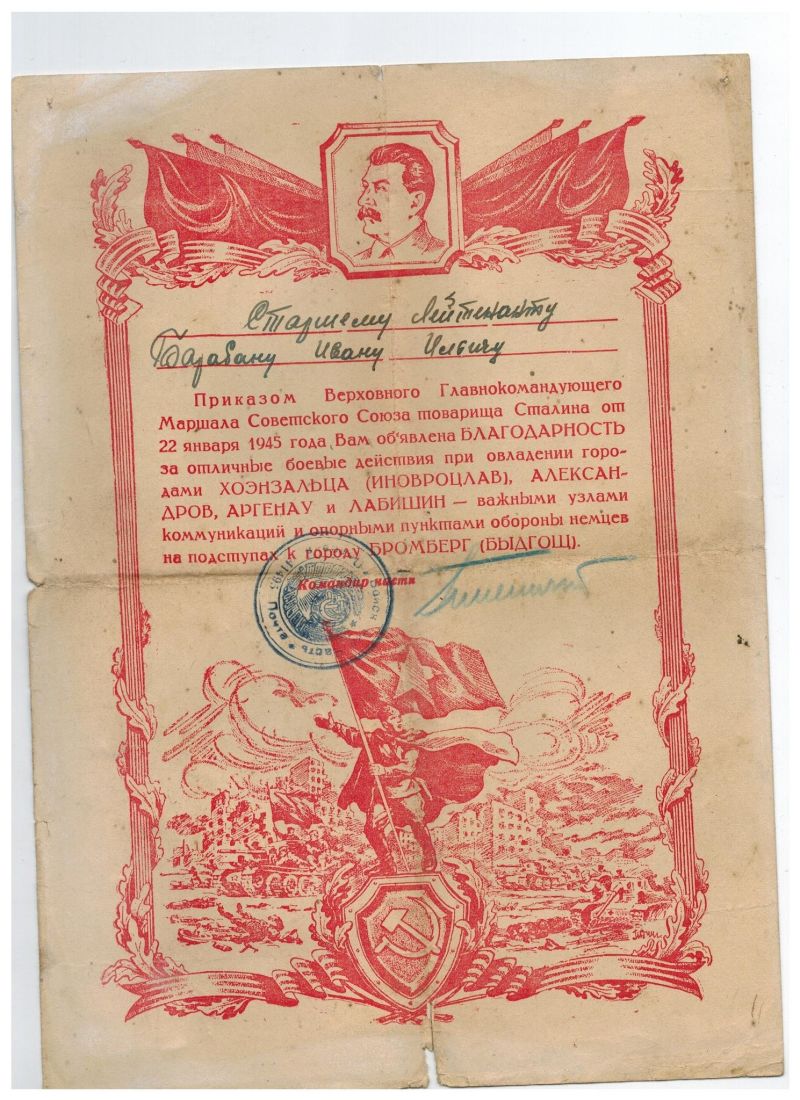 Старшему лейтенанту
Барабану Ивану Ильичу
Приказом Верховного Главнокомандующего
Маршала Советского Союза товарища Сталина от
22 января 1945 года Вам об'явлена БЛАГОДАРНОСТЬ
за отличные боевые действия при овладении горо-
дами ХОЭНЗАЛЬЦА (ИНОВРОЦЛАВ), АЛЕКСАН-
ДРОВ, АРГЕНАУ и ЛАБИШИН — важными узлами
коммуникаций и опорными пунктами обороны немцев
на подступах к городу БРОМБЕРГ (БЫДГОЩ).
Командир части
часть * Полевая